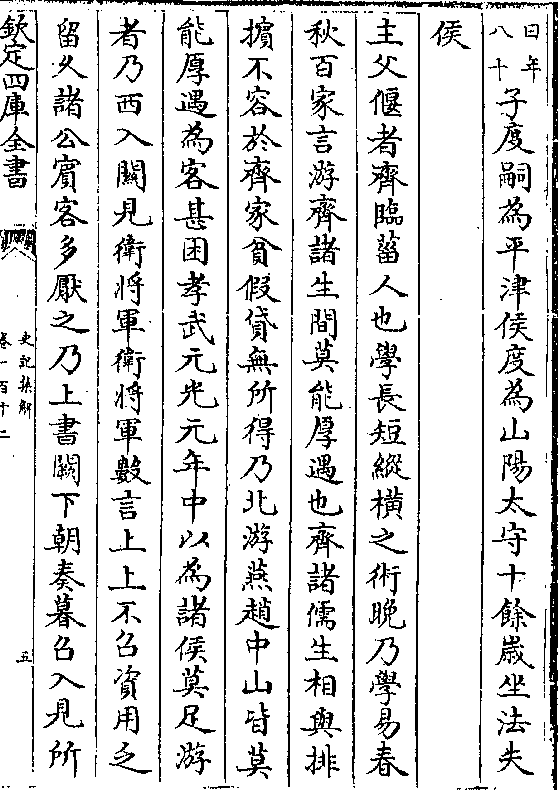 曰年
八十
子度嗣為平津侯度為山陽太守十餘嵗坐法失
侯
主父偃者齊臨菑人也學長短縱橫之術晚乃學易春
秋百家言游齊諸生間莫能厚遇也齊諸儒生相與排
擯不容於齊家貧假貸無所得乃北游燕趙中山皆莫
能厚遇為客甚困孝武元光元年中以為諸侯莫足游
者乃西入關見衛將軍衛將軍數言上上不召資用乏
留乆諸公賓客多厭之乃上書闕下朝奏暮召入見所
欽定四庫全書
史記集解
卷一百十二
五